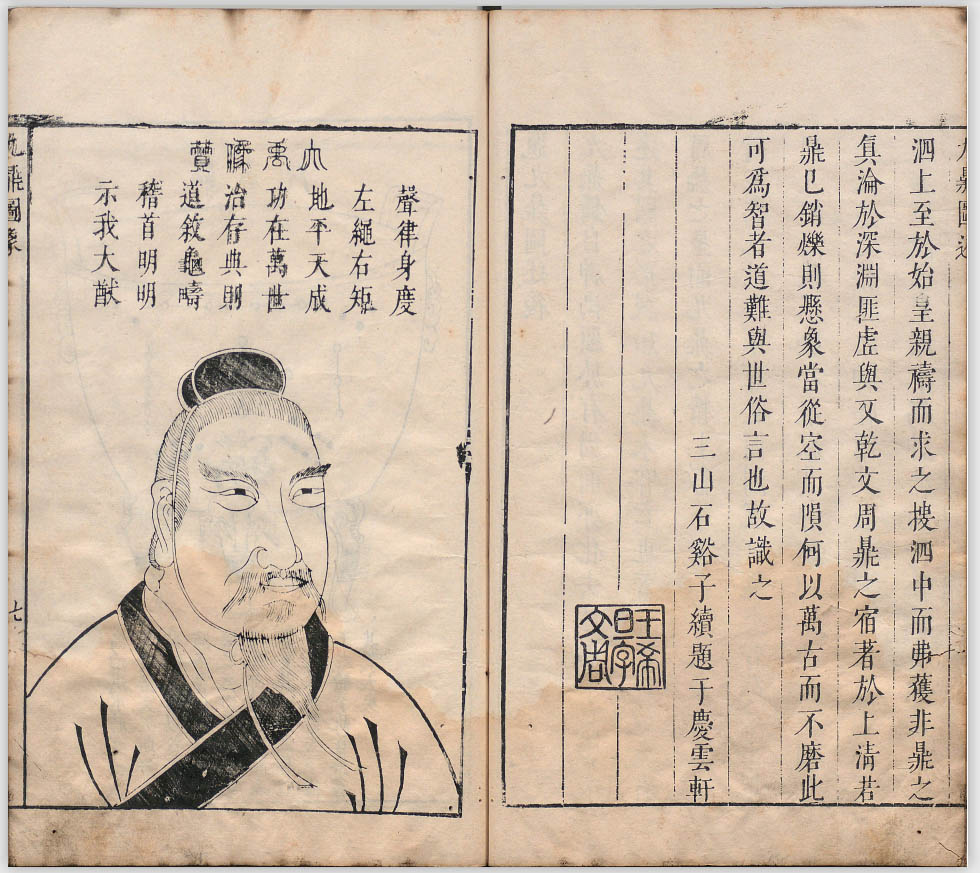 泗上至於始皇親禱而求之摉泗中而弗獲非鼎之
眞淪於深淵匪虛與又乾文周鼎之宿著於上淸若
鼎已銷爍則懸象當從空而隕何以萬古而不磨此
可爲智者道難與世俗言也故識之
三山石谿子續題于慶雲軒
王希旦字文周
大禹像贊
聲律身度
左繩右矩
地平天成
功在萬世
治存典則
道敘龜疇
稽首明明
示我大猷
九鼎圖象
七